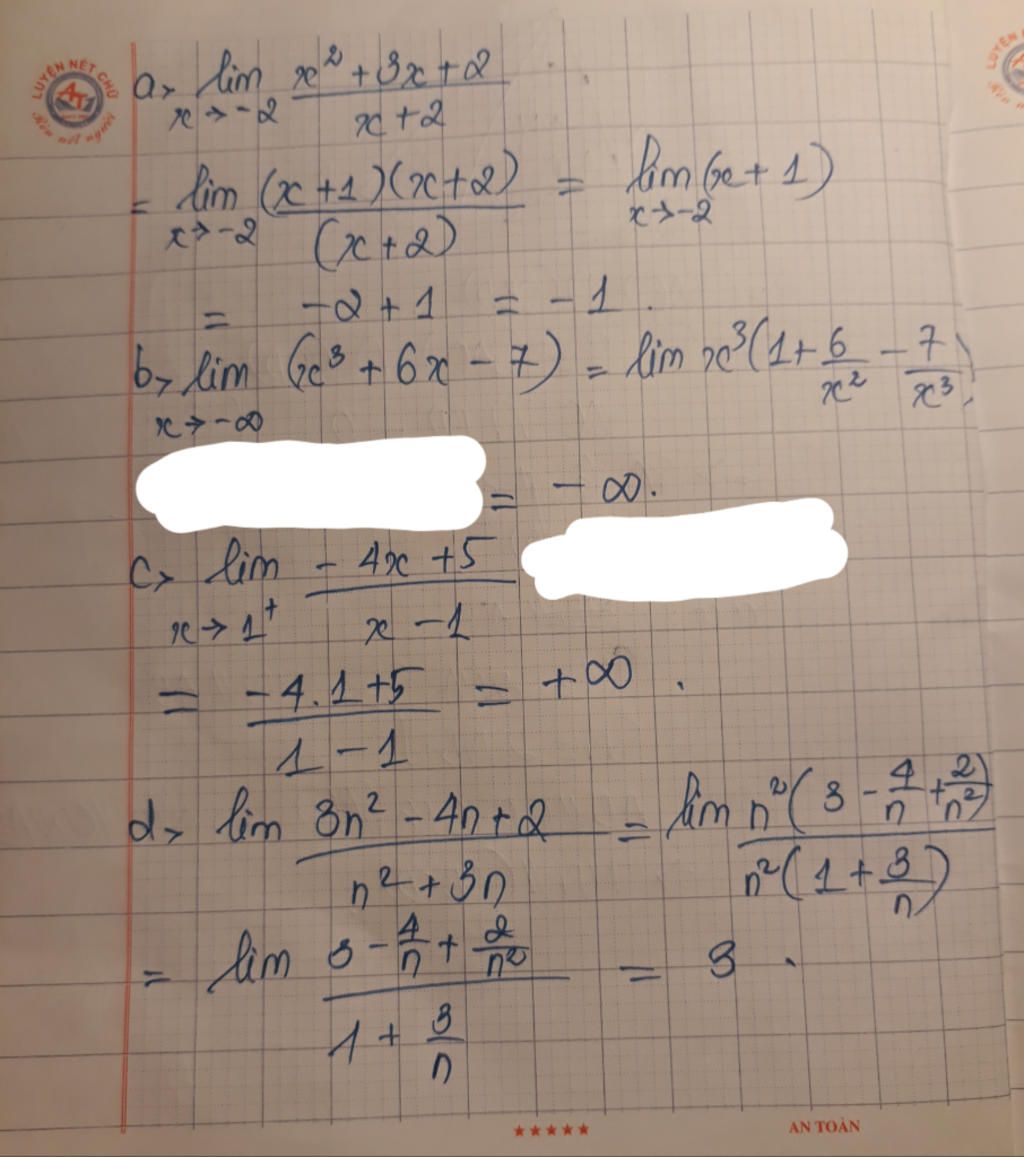 LUYỆN NÉT CHỮ
Rèn nết người
a> lim x→-2 (x² + 3x + 2)/(x + 2)
= lim x→-2 ((x + 1)(x + 2))/((x + 2)) = lim x→-2 (x + 1)
= -2 + 1 = -1.
b> lim x→-∞ (x³ + 6x - 7) = lim x³(1 + 6/x² - 7/x³)
= -∞.
c> lim x→1⁺ (-4x + 5)/(x - 1)
= (-4.1 + 5)/(1 - 1) = +∞.
d> lim (3n² - 4n + 2)/(n² + 3n) = lim (n²(3 - 4/n + 2/n²))/(n²(1 + 3/n))
= lim (3 - 4/n + 2/n²)/(1 + 3/n) = 3.
★★★★★ AN TOÀN